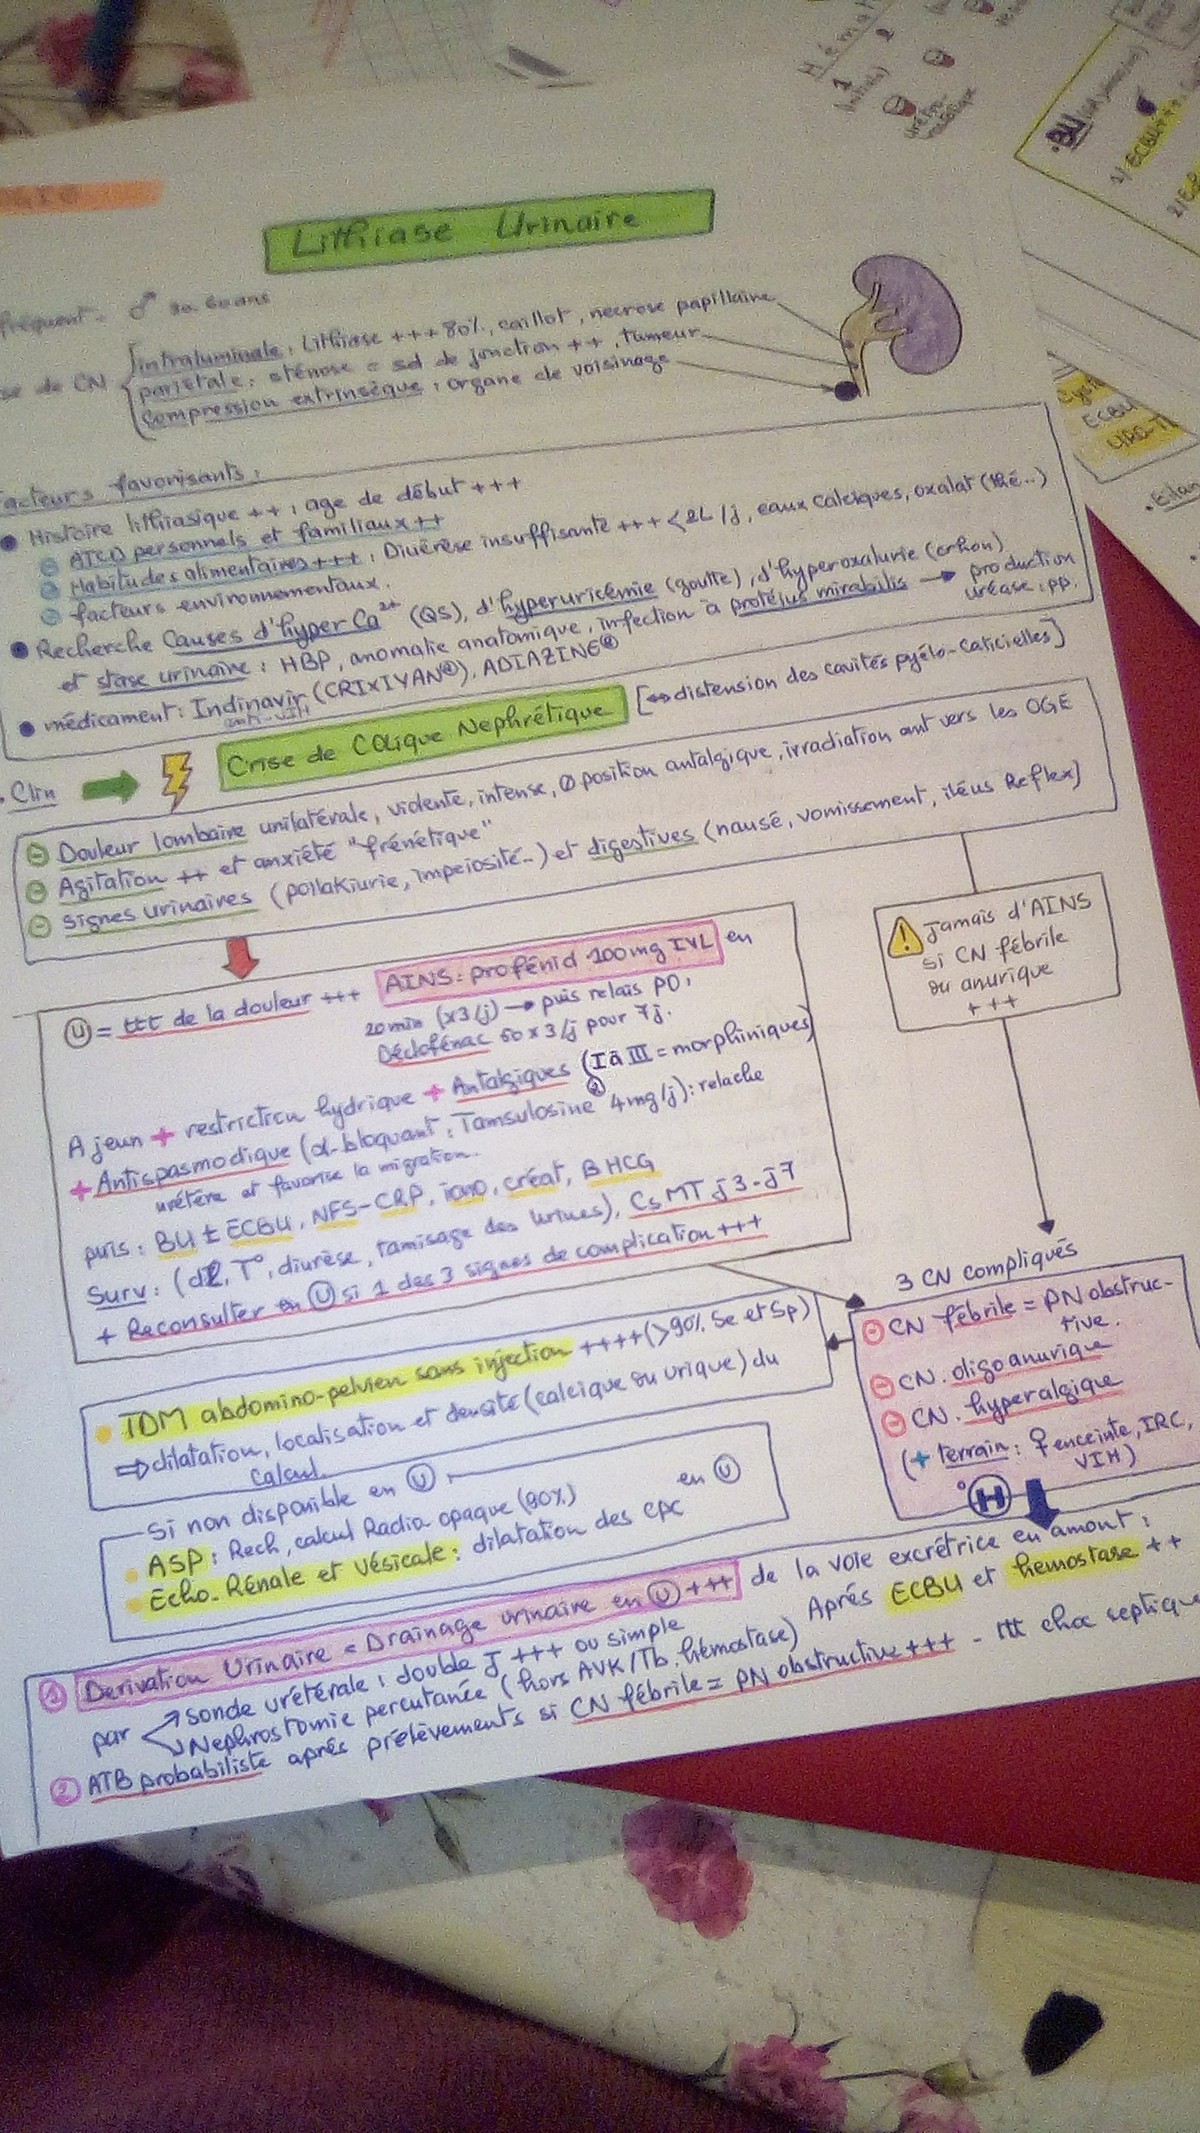 Lithiase Urinaire
fréquent - ♂ 60 ans
de CN { intraluminale : Lithiase +++ 80%, caillot, necrose papillaire
pariétale : sténose = sd de jonction ++, tumeur
Compression extrinsèque : organe de voisinage
acteurs favorisants :
● Histoire lithiasique ++ : age de début +++
ATCD personnels et familiaux ++
Habitudes alimentaires +++ : Diurèse insuffisante +++ < 2L /j, eaux calciques, oxalat (thé...)
facteurs environnementaux.
● Recherche Causes d'hyper Ca²⁺ (QS), d'hyperuricémie (goutte), d'hyperoxalurie (crhon)
et stase urinaire : HBP, anomalie anatomique, infection à protéus mirabilis → production
uréase : pp.
● médicament : Indinavir (CRIXIVAN®), ADIAZINE®
anti-VIH
. Clin
Crise de Colique Nephrétique
[↔ distension des cavités pyélo-caticielles]
⊖ Douleur lombaire unilatérale, vidente, intense, Ø position antalgique, irradiation ant vers les OGE
⊖ Agitation ++ et anxiété "frénétique"
⊖ signes urinaires (pollakiurie, impeiosité..) et digestives (nausé, vomissement, iléus Reflex)
Jamais d'AINS
si CN fébrile
ou anurique
+++
Ⓤ = ttt de la douleur +++ AINS : profénid 100mg IVL en
20min (x3/j) → puis relais PO :
Déclofénac 50 x 3/j pour 7j.
A jeun + restriction hydrique + Antalgiques (I à III = morphiniques)
+ Antispasmodique (α-bloquant : Tamsulosine 4mg/j) : relache
urétère et favorise la migration.
puis : BU ± ECBU, NFS-CRP, iono, créat, BHCG
Surv : (dl, T°, diurèse, tamisage des urines), Cs MT j3-j7
+ Reconsulter en Ⓤ si 1 des 3 signes de complication +++
3 CN compliqués
⊖ CN fébrile = PN obstruc-
tive.
⊖ CN. oligoanurique
⊖ CN. hyperalgique
(+ terrain : ♀ enceinte, IRC,
VIH)
Ⓗ
TDM abdomino-pelvien sans injection ++++ (>90% Se et Sp)
⇒ dilatation, localisation et densité (calcique ou urique) du
calcul
Si non disponible en Ⓤ
ASP : Rech, calcul Radio opaque (90%) en Ⓤ
Echo. Rénale et vésicale : dilatation des CPC
① Derivation Urinaire = Drainage urinaire en Ⓤ +++ de la voie excrétrice en amont :
par ↗ sonde urétérale : double J +++ ou simple Après ECBU et hemostase ++
↘ Nephrostomie percutanée (hors AVK/Tb. hémostase)
② ATB probabiliste aprés prélèvements si CN fébrile = PN obstructive +++ - ttt choc septique
Hémat
1
2
(initiale)
BU
1/ ECBU
ECBU